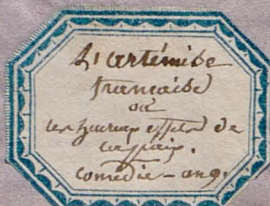 L'artémise
francaise
ou
les heureux effets de
la paix.
comédie - ang.